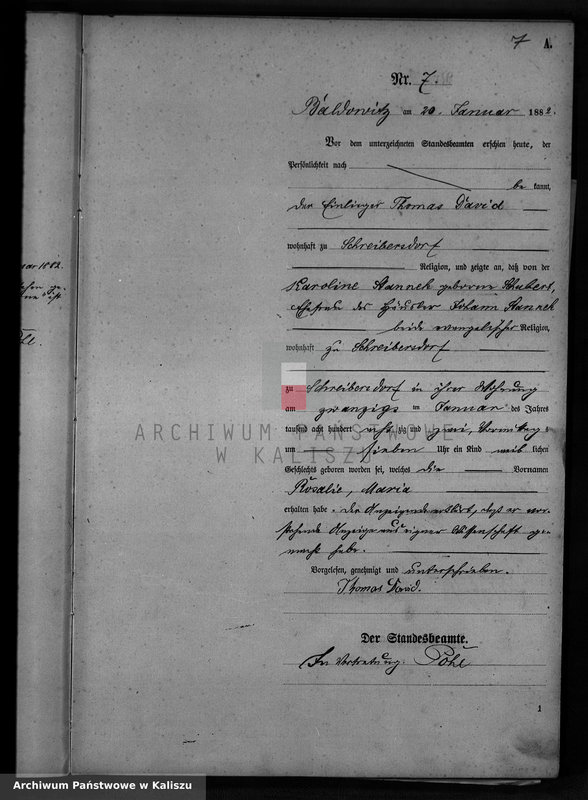 7 A.
Nr. 7.
Baldowitz am 20. Januar 1882.
Vor dem unterzeichneten Standesbeamten erschien heute, der
Persönlichkeit nach
be kannt,
der Einlieger Thomas David
wohnhaft zu Schreibersdorf
Religion, und zeigte an, daß von der
Karoline Hanneh geborene Schubert,
Ehefrau des Häusler Johann Hanneh
beide evangelischer Religion,
wohnhaft zu Schreibersdorf
zu Schreibersdorf in ihrer Wohnung
am zwanzigs ten Januar des Jahres
tausend acht hundert acht zig und zwei, Vormittags
um sieben Uhr ein Kind weib lichen
Geschlechts geboren worden sei, welches die Vornamen
Rosalie, Maria
erhalten habe. Der Anzeigende erklärt, daß er vor-
stehende Anzeige aus eigner Wissenschaft ge-
macht habe.
Vorgelesen, genehmigt und unterschrieben.
Thomas David.
Der Standesbeamte.
In Vertretung. Pohl
1
nuar 1882.
ARCHIWUM PAŃSTWOWE
W KALISZU
Archiwum Państwowe w Kaliszu